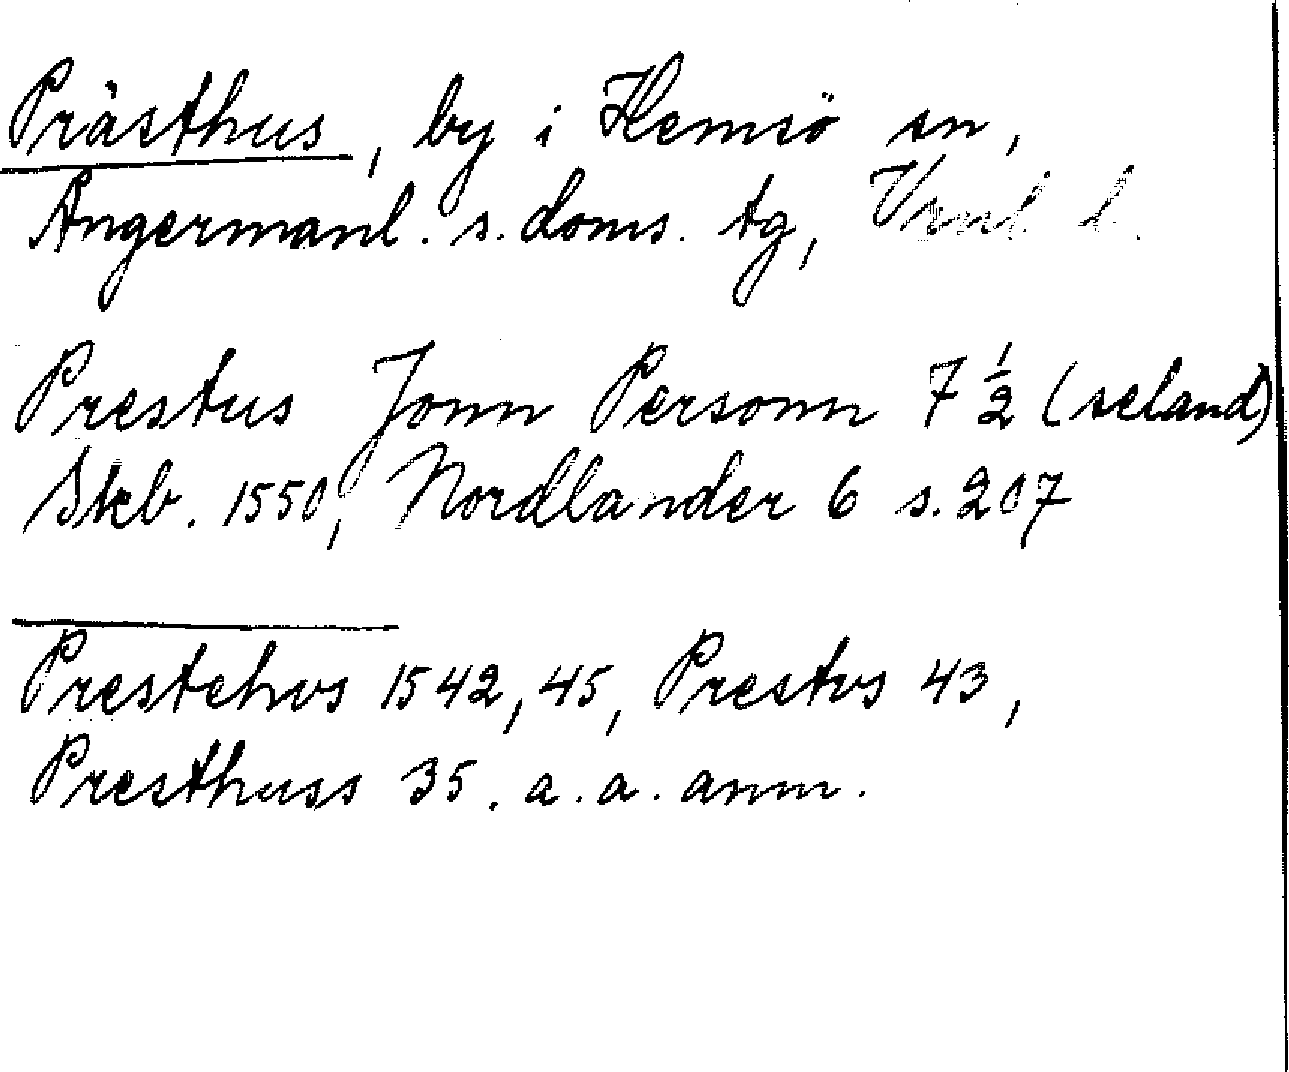 Prästhus, by i Hemsö sn,
Ångermanl. s. doms. tg, Vnl l.
Prestus Jonn Personn 7 1/2 (seland)
Skb. 1550, Nordlander 6 s. 207
Prestehvs 1542, 45, Prestvs 43,
Presthuss 35. a. a. anm.